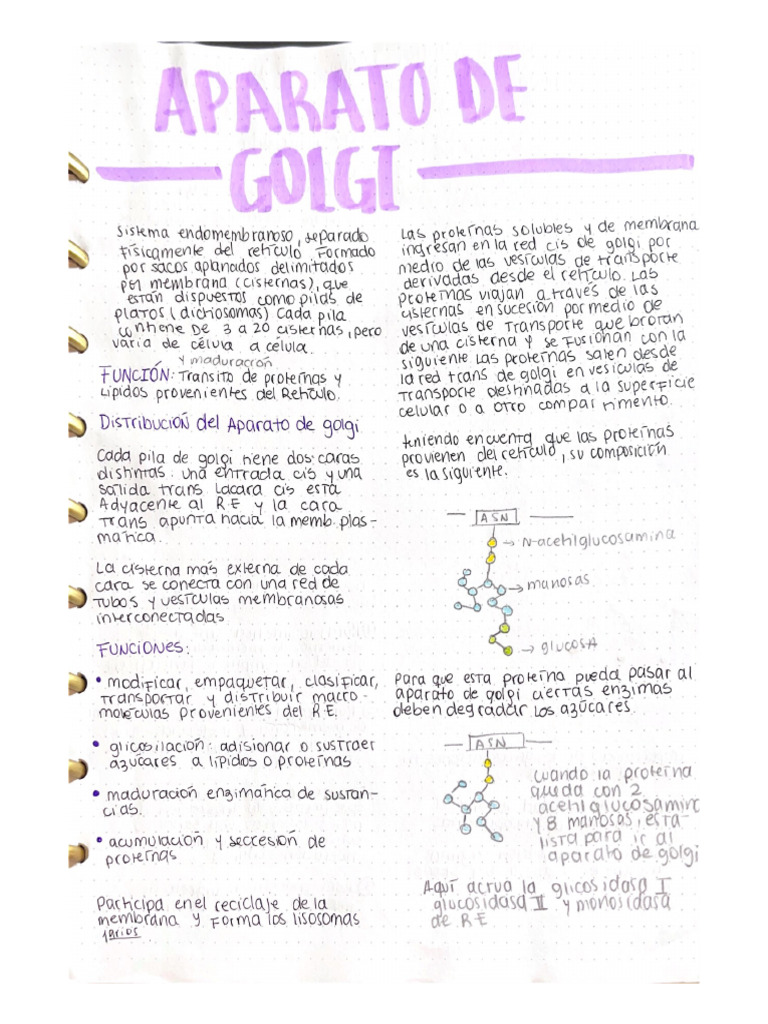 APARATO DE
GOLGI
Sistema endomembranoso, separado
físicamente del retículo Formado
por sacos aplanados delimitados
por membrana (cisternas), que
están dispuestos como pilas de
platos (dichiosomas) Cada pila
contiene DE 3 a 20 cisternas, pero
varía de célula a célula.
y maduración
FUNCIÓN: Transito de proteínas y
Lípidos provenientes del Retículo.
Distribución del Aparato de golgi
Cada pila de golgi tiene dos caras
distintas: una entrada cis y una
salida trans La cara cis está
Adyacente al R.E y la cara
Trans apunta hacia la memb. plas-
mática.
La cisterna más externa de cada
cara se conecta con una red de
Tubos y vesículas membranosas
interconectadas
FUNCIONES:
• modificar, empaquetar, clasificar,
transportar y distribuir macro-
moléculas provenientes del R.E.
• glicosilación: adisionar o sustraer
azúcares a lípidos o proteínas
• maduración enzimática de sustan-
cias.
• acumulación y secresión de
proteínas
Participa en el reciclaje de la
membrana y Forma los lisosomas
1arios
Las proteínas solubles y de membrana
ingresan en la red cis de golgi por
medio de las vesículas de transporte
derivadas desde el retículo. Las
proteínas viajan a través de las
cisternas en sucesión por medio de
vesículas de transporte que brotan
de una cisterna y se fusionan con la
siguiente Las proteínas salen desde
la red trans de golgi en vesículas de
transporte destinadas a la superficie
celular o a otro compartimento.
teniendo en cuenta que las proteínas
provienen del retículo, su composición
es la siguiente.
ASN
N-acetilglucosamina
manosas
glucosa
Para que esta proteína pueda pasar al
aparato de golgi ciertas enzimas
deben degradar los azúcares.
ASN
Cuando la proteína
queda con 2
acetilglucosamina
y 8 manosas, esta
lista para ir al
aparato de golgi
Aquí actua la glicosidasa I
glucosidasa II y monosidasa
de R.E